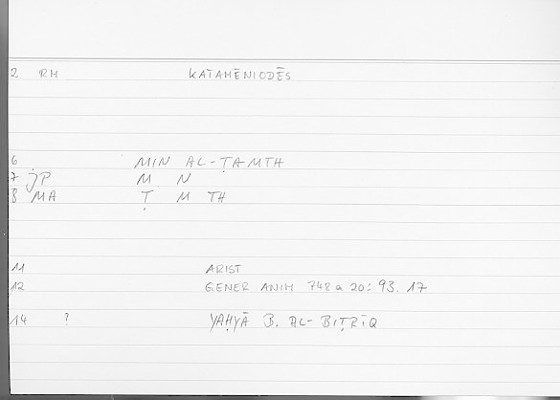 2 RM KATAMĒNIODĒS
6 MIN AL-ṬAMTH
7 jP M N
8 MA Ṭ M TH
11 ARIST
12 GENER ANIM 748a20: 93.17
14 ? YAḤYĀ B. AL-BIṬRĪQ